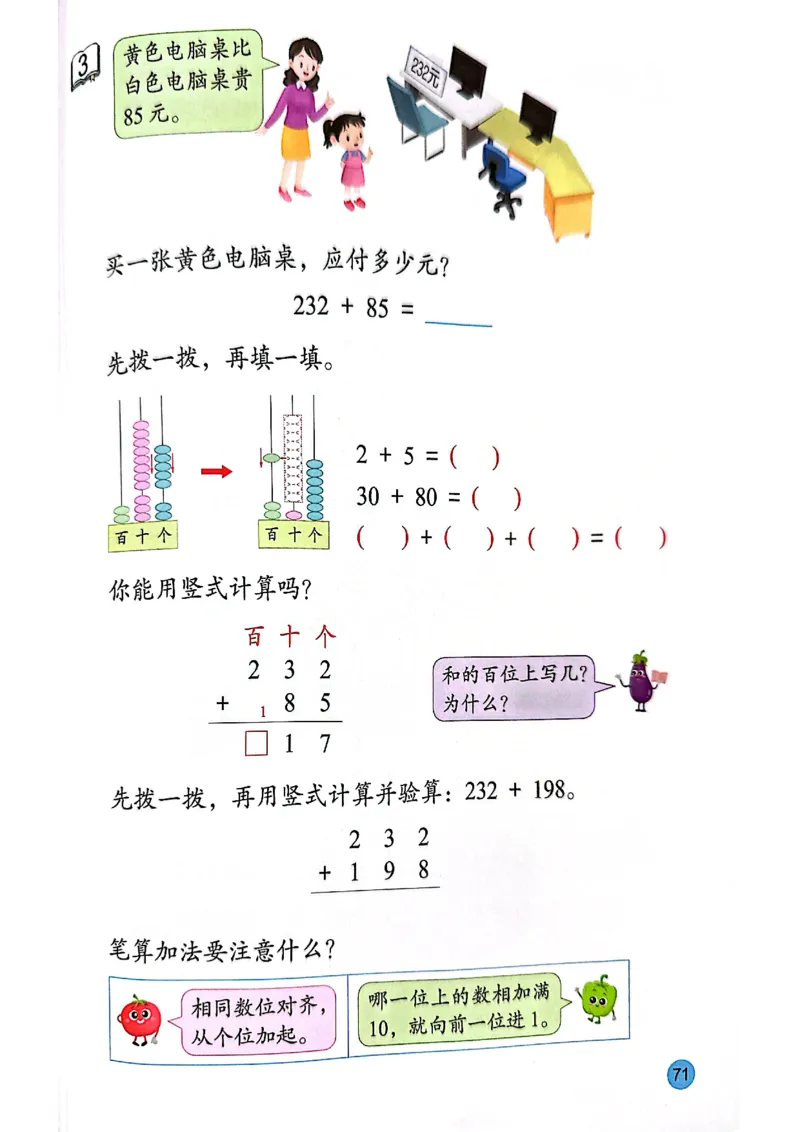 3
黄色电脑桌比
白色电脑桌贵
85 元。
232元
买一张黄色电脑桌，应付多少元？
232 + 85 =
先拨一拨，再填一填。
百 十 个
百 十 个
2 + 5 = (  )
30 + 80 = (  )
(  ) + (  ) + (  ) = (  )
你能用竖式计算吗？
百 十 个
2 3 2
+ 1 8 5
□ 1 7
和的百位上写几？
为什么？
先拨一拨，再用竖式计算并验算：232 + 198。
2 3 2
+ 1 9 8
笔算加法要注意什么？
相同数位对齐，
从个位加起。
哪一位上的数相加满
10，就向前一位进 1。
71